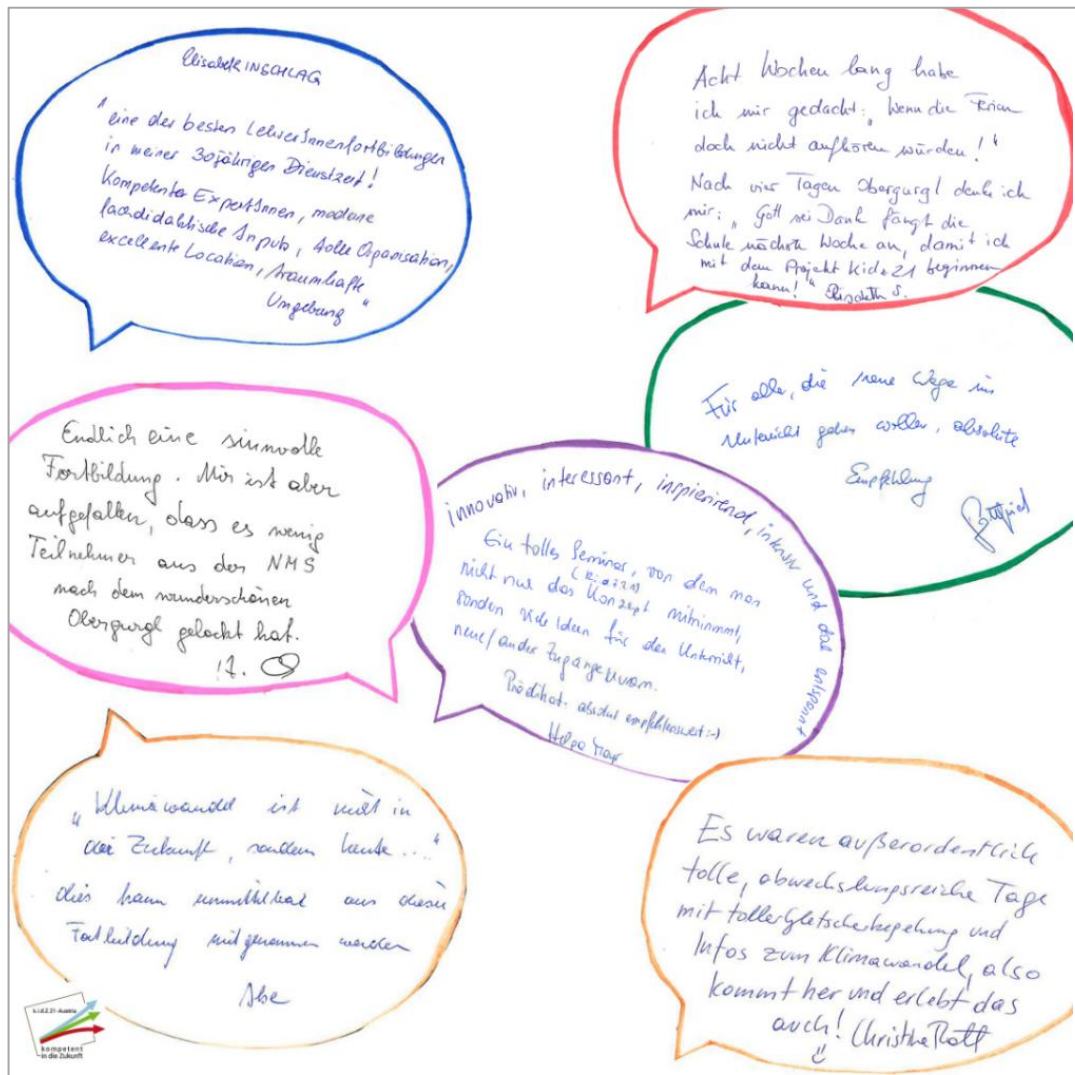 Elisabeth INSCHLAG
"eine der besten LehrerInnenfortbildungen
in meiner 30jährigen Dienstzeit!
Kompetente ExpertInnen, moderne
fachdidaktische Inputs, tolle Organisation,
excellente Location, traumhafte
Umgebung"
Acht Wochen lang habe
ich mir gedacht: "Wenn die Ferien
doch nicht aufhören würden!"
Nach vier Tagen Obergurgl denk ich
mir: "Gott sei Dank fängt die
Schule nächste Woche an, damit ich
mit dem Projekt Kidz21 beginnen
kann!" Elisabeth S.
Für alle, die neue Wege im
Unterricht gehen wollen, absolute
Empfehlung
Gottfried
Endlich eine sinnvolle
Fortbildung. Mir ist aber
aufgefallen, dass es wenig
Teilnehmer aus der NMS
nach dem wunderschönen
Obergurgl gelockt hat.
innovativ, interessant, inspirierend, intensiv und dal entspannt
Ein tolles Seminar, von dem man
nicht nur das Konzept (k.i.d.Z.21) mitnimmt,
sondern viele Ideen für den Unterricht,
neue/andere Zugangsweisen.
Prädikat: absolut empfehlenswert :-)
Helga Mayr
"Klimawandel ist nicht in
der Zukunft, sondern heute..."
dies kann unmittelbar aus dieser
Fortbildung mitgenommen werden
Es waren außerordentlich
tolle, abwechslungsreiche Tage
mit toller Gletscherbegehung und
Infos zum Klimawandel, also
kommt her und erlebt das
auch! Christine Rott
k.i.d.Z.21-Austria
kompetent
in die Zukunft